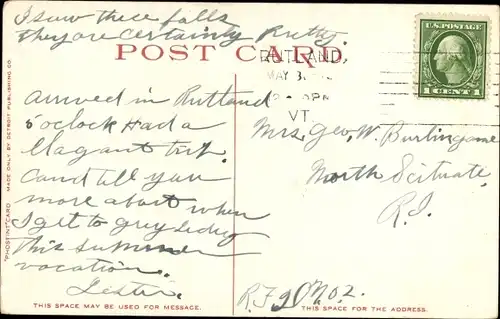 I saw these falls
they are certainly Pretty.
POST CARD
U.S. POSTAGE
1 CENT 1
RUTLAND,
MAY 31
PM
VT.
arrived in Rutland
5 oclock Had a
Elagant trip.
Cand tell you
more about when
I get to
this summer
vacation.
Lester.
Mrs. Geo. W. Burlingame
North Scituate,
R.I.
R.F.D. No. 2.
"PHOSTINT" CARD MADE ONLY BY DETROIT PUBLISHING CO.
THIS SPACE MAY BE USED FOR MESSAGE.
THIS SPACE FOR THE ADDRESS.